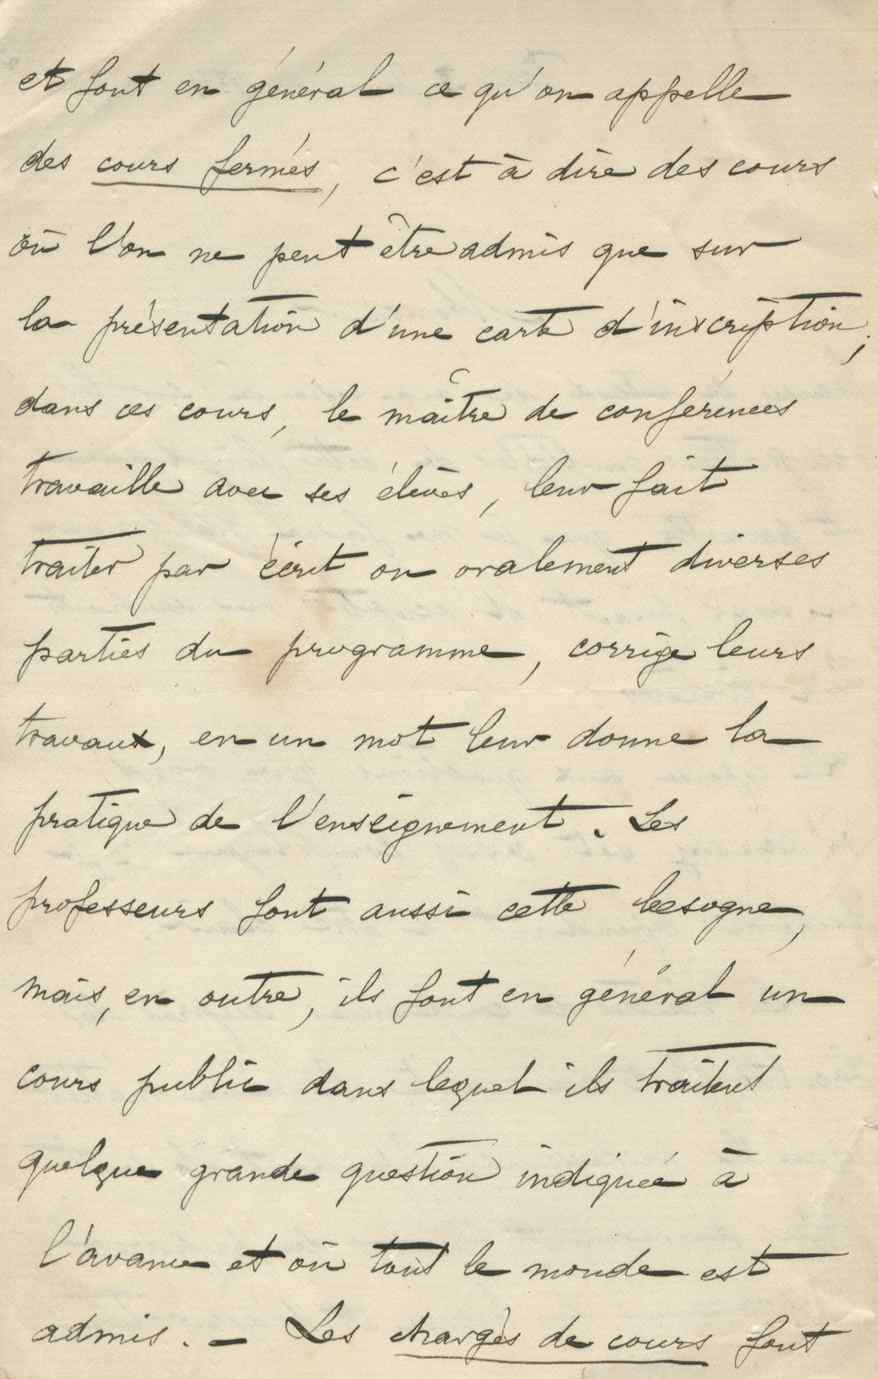 et font en général ce qu'on appelle
des cours fermés, c'est à dire des cours
où l'on ne peut être admis que sur
la présentation d'une carte d'inscription;
dans ces cours, le maître de conférences
travaille avec ses élèves, leur fait
traiter par écrit ou oralement diverses
parties du programme, corrige leurs
travaux, en un mot leur donne la
pratique de l'enseignement. Les
professeurs font aussi cette besogne,
mais, en outre, ils font en général un
cours public dans lequel ils traitent
quelque grande question indiquée à
l'avance et où tout le monde est
admis. — Les chargés de cours font